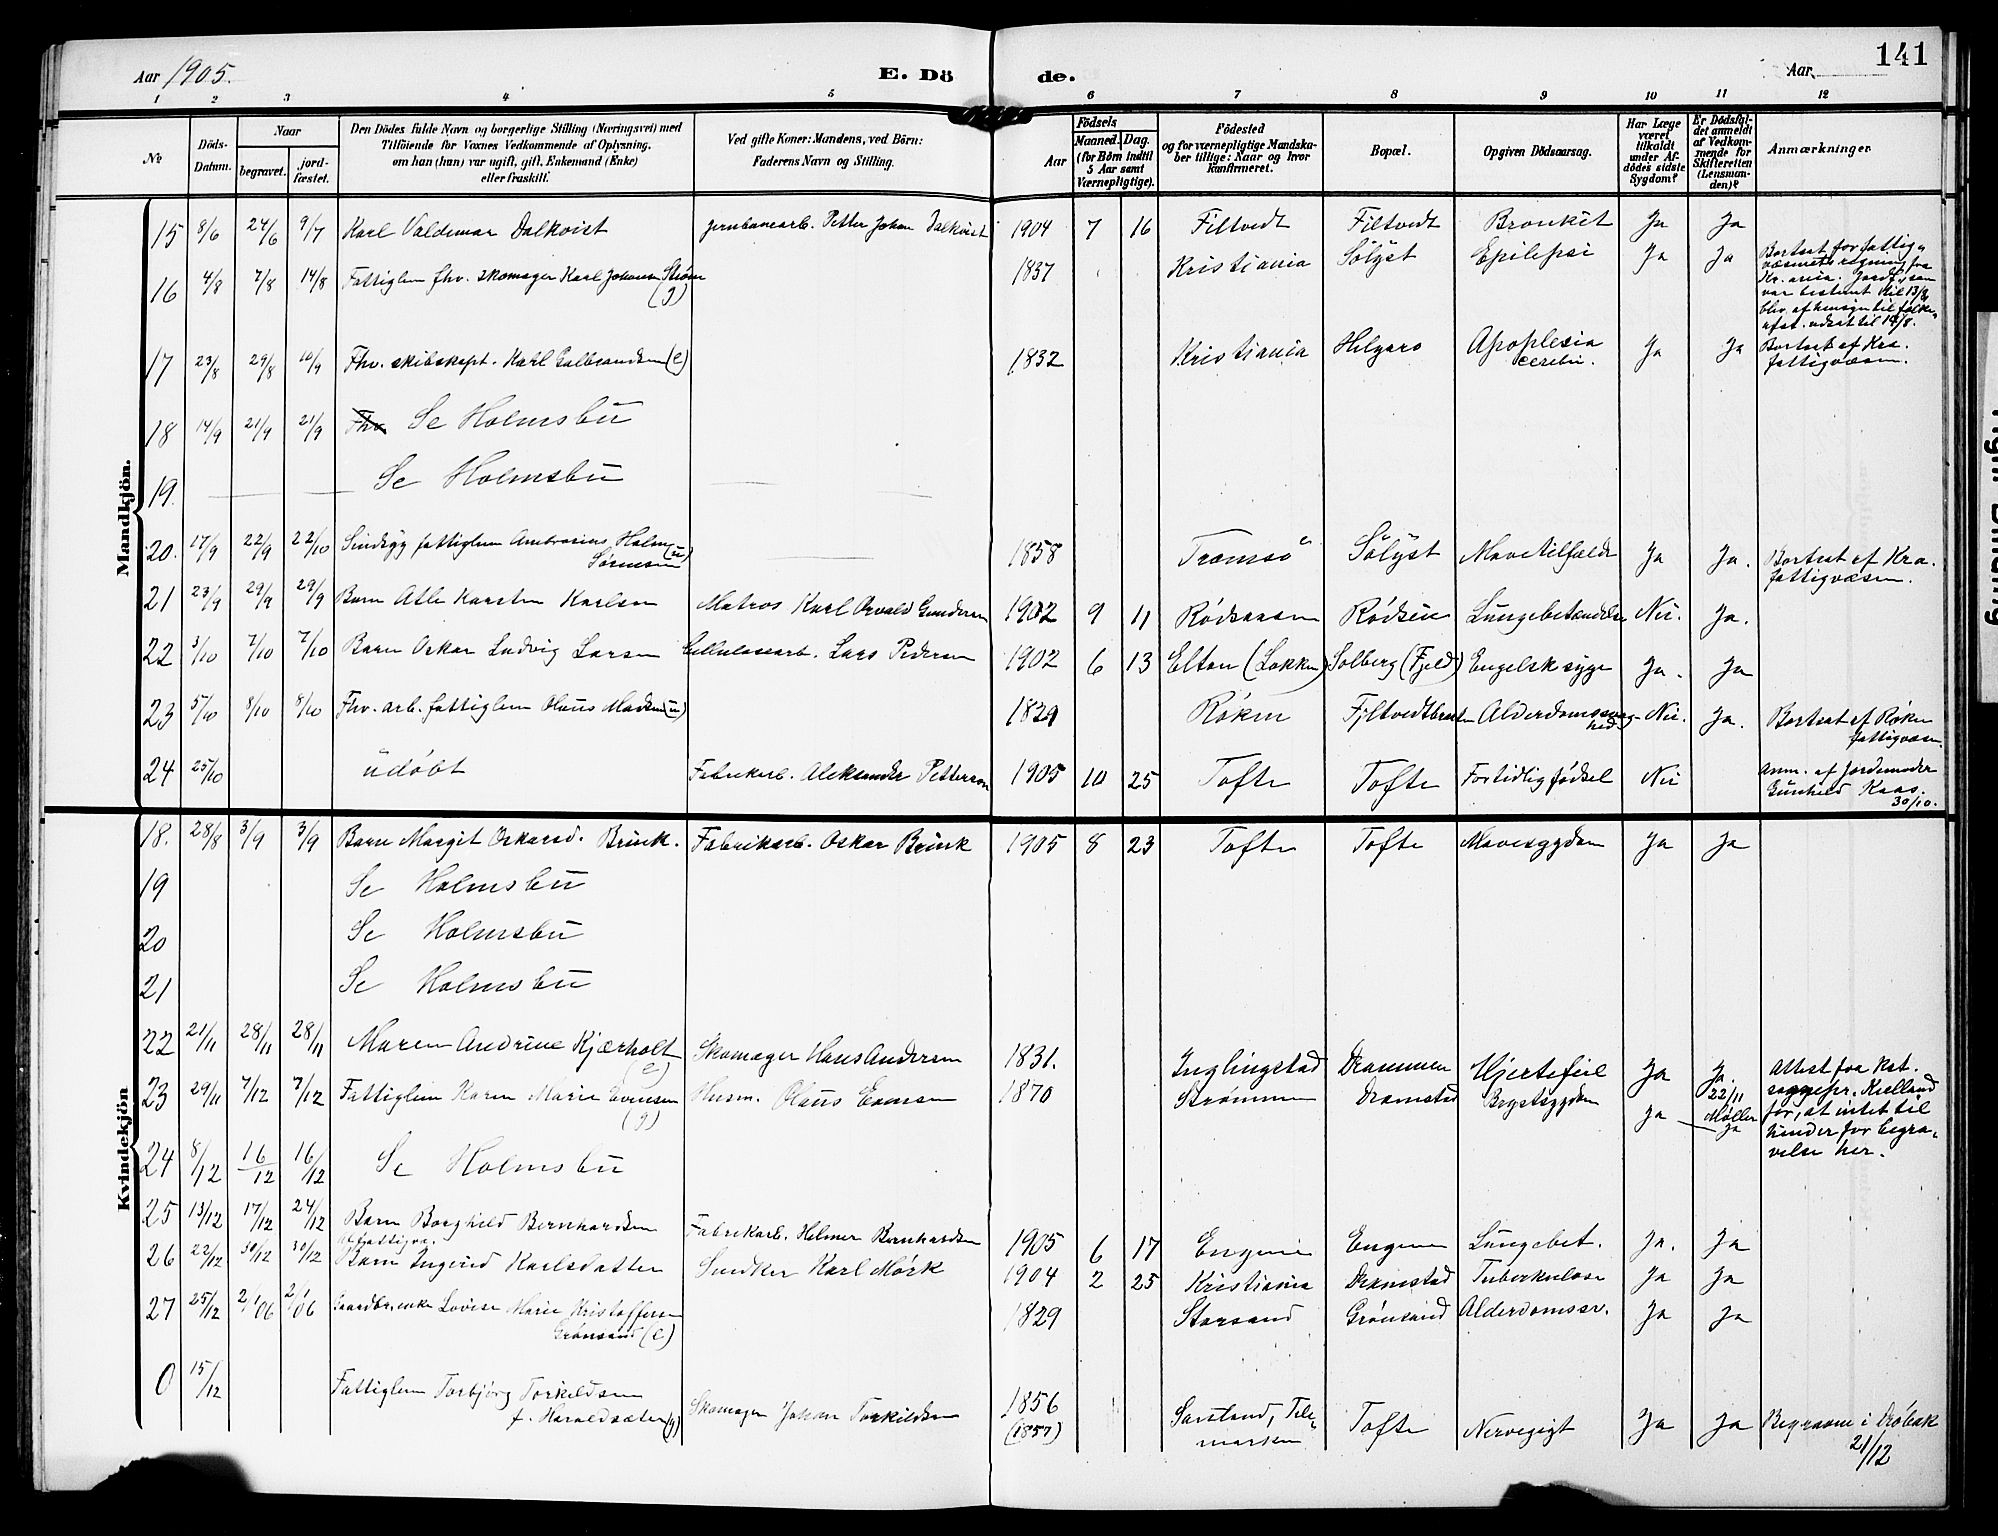 141
Aar 1905.
E. Dö de.
Aar
1 2 3 4 5 6 7 8 9 10 11 12
No
Döds-
Datum.
Naar
begravet.
jord-
fæstet.
Den Dödes fulde Navn og borgerlige Stilling (Næringsvei) med
Tilföiende for Voxnes Vedkommende af Oplysning,
om han (hun) var ugift, gift, Enkemand (Enke)
eller fraskilt.
Ved gifte Koner: Mandens, ved Börn:
Faderens Navn og Stilling.
Födsels
Aar
Maaned. Dag.
(for Börn indtil
5 Aar samt
Værnepligtige).
Födested
og for værnepligtige Mandska-
ber tillige: Naar og hvor
konfirmeret.
Bopæl.
Opgiven Dödsaarsag.
Har Læge
været
tilkaldt
under Af-
dödes sidste
Sygdom?
Er Dödsfal-
det anmeldt
af Vedkom-
mende for
Skifteretten
(Lensman-
den)?
Anmærkninger
Mandkjön.
15 8/6 24/6 9/7 Karl Valdemar Dalkvist jernbanearb. Petter Johan Dalkvist 1904 7 16 Filtvedt Filtvedt Bronkit Ja Ja
16 4/8 7/8 14/8 Fattiglem fhv. skomager Karl Johansen Strøm (g) 1837 Kristiania Sølyst Epilepsi Ja Ja
Bortsat for fattig-
væsenets regning fra
Kr.ania. Jordf., som
var bestemt til 13/8,
blev af hensyn til folke-
afst. udsat til 14/8.
17 23/8 29/8 10/9 Fhv. skibskapt. Karl Gulbrandsen (e) 1832 Kristiania Helgaro Apoplexia
cerebri. Ja Ja Bortsat af Kra.
fattigvæsen.
18 14/9 21/9 21/9 Fhv. Se Holmsbu
19. Se Holmsbu
20. 17/9 22/9 22/10 Sindssyg fattiglem Ambrosius Holm (u)
Sørensen 1858 Tromsø Sølyst Mavetilfælde Ja Ja. Bortsat af Kra.
fattigvæsen.
21 23/9 29/9 29/9 Barn Atle Karsten Karlsen Matros Karl Osvald Gundersen 1902 9 11 Rødsaasen Rødsün Lungebetændelse Nei. Ja.
22 3/10 7/10 7/10 Barn Oskar Ludvig Larsen Cellulosearb. Lars Pedersen 1902 6 13 Elton (Løkken) Solberg (Fjeld) Engelsk syge Ja. Ja
23 5/10 8/10 8/10 Fhv. arb. fattiglem Olaus Madsen (u) 1829 Røken Filtvedtbraaten Alderdomssvag-
hed Nei. Ja. Bortsat af Røken
fattigvæsen.
24 25/10 udøbt Fabrikarb. Aleksander Petterson 1905 10 25 Tofte Tofte Fortidlig fødsel Nei
Anm. af Jordemoder
Gunhild Kaas.
30/10.
Kvindekjön
18. 28/8 3/9 3/9 Barn Margit Oskarsd. Brink. Fabrikarb. Oskar Brink 1905 8 23 Tofte Tofte Mavesygdom Ja Ja
19 Se Holmsbu
20 Se Holmsbu
21 Se Holmsbu
22 21/11 28/11 28/11 Maren Andrine Kjærholt (e) Skomager Hans Andersen 1831. Inglingstad Drammen Hjertefeil Ja Ja.
22/11
Møller
Attest fra Kst.
sognepr. Kielland
for, at intet til
hinder for begra-
velse her.
23 29/11 7/12 7/12 Fattiglem Karen Marie Evensen (g) Husm. Olaus Evensen 1870 Strømmen Dramstad Brystsygdom Ja Ja
24 8/12 16/12 16/12 Se Holmsbu
25 13/12 17/12 24/12 Barn Borghild Bernhardsen Fabrikarb. Helmer Bernhardsen 1905 6 17 Engene Engene Lungebet. Ja. Ja
26 22/12 30/12 30/12 Barn Ingerid Karlsdatter Snedker Karl Mørk 1904 2 25 Kristiania Dramstad Tuberkulose Ja Ja
27 25/12 2/1 06 2/1 06 Gaardbr. enke Lovise Marie Kristoffersen
Grønsand (e) 1829 Storsand Grønsand Alderdomssv. Ja Ja
0 15/12 Fattiglem Torbjørg Torkildsen
f. Haraldsæter (g) Skomager Johan Torkildsen 1856
(1857) Sarsland, Tele-
marken Tofte Nervegigt Ja Ja Begravne i Drøbak
21/12